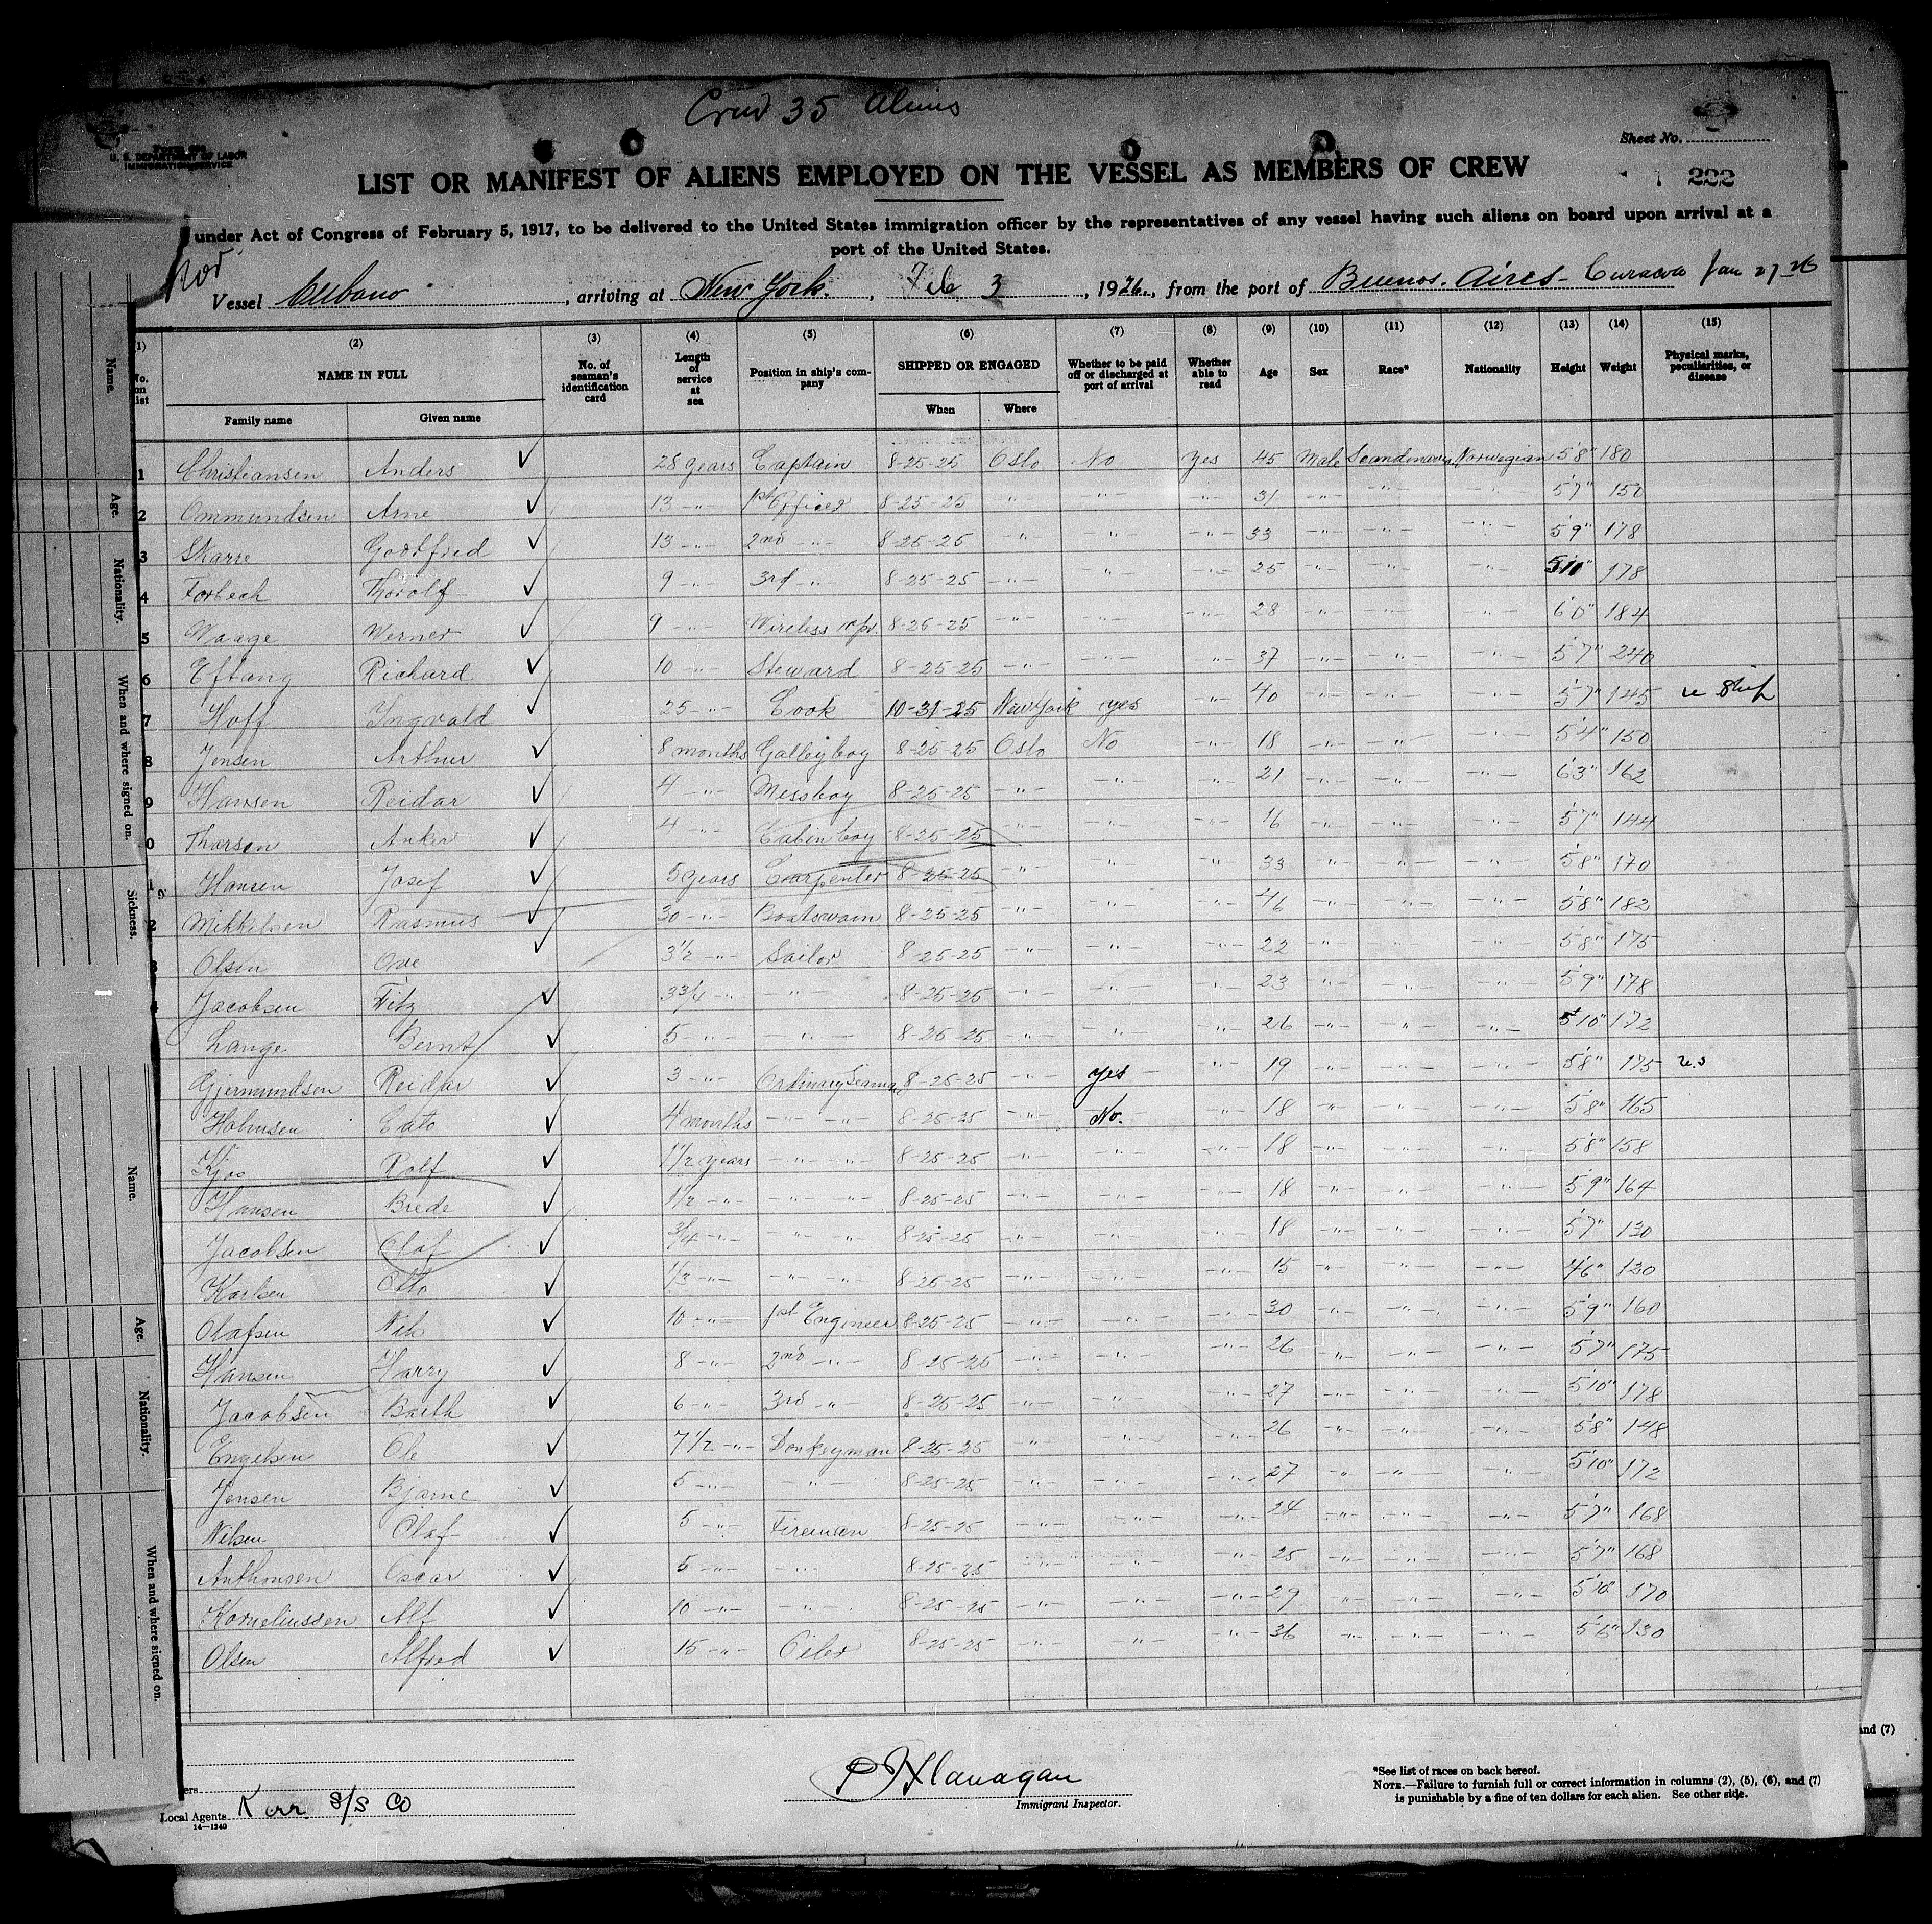 Crew 35 Aliens
U. S. DEPARTMENT OF LABOR
IMMIGRATION SERVICE
Sheet No.
222
LIST OR MANIFEST OF ALIENS EMPLOYED ON THE VESSEL AS MEMBERS OF CREW
under Act of Congress of February 5, 1917, to be delivered to the United States immigration officer by the representatives of any vessel having such aliens on board upon arrival at a
port of the United States.
Nor.
Vessel Cubano, arriving at New York, Feb 3, 1926, from the port of Buenos Aires - Curacao Jan 27-26
(1) (2) (3) (4) (5) (6) (7) (8) (9) (10) (11) (12) (13) (14) (15)
No. on list NAME IN FULL No. of seaman's identification card Length of service at sea Position in ship's company SHIPPED OR ENGAGED Whether to be paid off or discharged at port of arrival Whether able to read Age Sex Race* Nationality Height Weight Physical marks, peculiarities, or disease
Family name Given name When Where
1 Christiansen Anders ✓ 28 years Captain 8-25-25 Oslo No Yes 45 Male Scandinavian Norwegian 5'8" 180
2 Ommundsen Arne ✓ 13 -"- 1st Officer 8-25-25 -"- -"- -"- 31 -"- -"- -"- 5'7" 150
3 Skarre Godtfred ✓ 13 -"- 2nd -"- 8-25-25 -"- -"- -"- 33 -"- -"- -"- 5'9" 178
4 Forbech Thorolf ✓ 9 -"- 3rd -"- 8-25-25 -"- -"- -"- 25 -"- -"- -"- 5'10" 178
5 Waage Werner ✓ 9 -"- Wireless opr. 8-26-25 -"- -"- -"- 28 -"- -"- -"- 6'0" 184
6 Eftang Richard ✓ 10 -"- Steward 8-25-25 -"- -"- -"- 37 -"- -"- -"- 5'7" 240
7 Hoff Ingvald ✓ 25 -"- Cook 10-31-25 New York yes -"- 40 -"- -"- -"- 5'7" 145
8 Jensen Arthur ✓ 8 months Galleyboy 8-25-25 Oslo No -"- 18 -"- -"- -"- 5'4" 150
9 Hansen Reidar ✓ 4 -"- Messboy 8-25-25 -"- -"- -"- 21 -"- -"- -"- 6'3" 162
0 Thorsen Anker ✓ 4 -"- Cabinboy 8-25-25 -"- -"- -"- 16 -"- -"- -"- 5'7" 144
1 Hansen Josef ✓ 5 years Carpenter 8-25-25 -"- -"- -"- 33 -"- -"- -"- 5'8" 170
2 Mikkelsen Rasmus ✓ 30 -"- Boatswain 8-25-25 -"- -"- -"- 46 -"- -"- -"- 5'8" 182
3 Olsen Ove ✓ 3 1/2 -"- Sailor 8-25-25 -"- -"- -"- 22 -"- -"- -"- 5'8" 175
Jacobsen Fitz ✓ 3 3/4 -"- -"- 8-25-25 -"- -"- -"- 23 -"- -"- -"- 5'9" 178
Lange Bernt ✓ 5 -"- -"- 8-26-25 -"- -"- -"- 26 -"- -"- -"- 5'10" 172
Gjermundsen Reidar ✓ 3 -"- Ordinary Seaman 8-25-25 -"- yes -"- 19 -"- -"- -"- 5'8" 175
Holmsen Cato ✓ 4 months -"- -"- 8-25-25 -"- No. -"- 18 -"- -"- -"- 5'8" 165
Kjos Rolf ✓ 1 1/2 years -"- -"- 8-25-25 -"- -"- -"- 18 -"- -"- -"- 5'8" 158
Hansen Brede ✓ 1/2 -"- -"- -"- 8-25-25 -"- -"- -"- 18 -"- -"- -"- 5'9" 164
Jacobsen Olaf ✓ 3/4 -"- -"- -"- 8-25-25 -"- -"- -"- 18 -"- -"- -"- 5'7" 130
Karlsen Otto ✓ 1/3 -"- -"- -"- 8-25-25 -"- -"- -"- 15 -"- -"- -"- 4'6" 130
Olafsen Nils ✓ 10 -"- 1st Engineer 8-25-25 -"- -"- -"- 30 -"- -"- -"- 5'9" 160
Hansen Harry ✓ 8 -"- 2nd -"- 8-25-25 -"- -"- -"- 26 -"- -"- -"- 5'7" 175
Jacobsen Barth ✓ 6 -"- 3rd -"- 8-25-25 -"- -"- -"- 27 -"- -"- -"- 5'10" 178
Engelsen Ole ✓ 7 1/2 -"- Donkeyman 8-25-25 -"- -"- -"- 26 -"- -"- -"- 5'8" 148
Jensen Bjarne ✓ 5 -"- -"- 8-25-25 -"- -"- -"- 27 -"- -"- -"- 5'10" 172
Nilsen Olaf ✓ 5 -"- Fireman 8-25-25 -"- -"- -"- 24 -"- -"- -"- 5'7" 168
Anthonsen Oscar ✓ 5 -"- -"- 8-25-25 -"- -"- -"- 25 -"- -"- -"- 5'7" 168
Korneliussen Alf ✓ 10 -"- -"- 8-25-25 -"- -"- -"- 29 -"- 5'10" 170
Olsen Alfred ✓ 15 -"- Oiler 8-25-25 -"- -"- -"- 36 -"- -"- -"- 5'6" 130
P J Flanagan
Immigrant Inspector.
Local Agents Kerr S/S Co
14—1240
*See list of races on back hereof.
NOTE.—Failure to furnish full or correct information in columns (2), (5), (6), and (7)
is punishable by a fine of ten dollars for each alien. See other side.
and (7)
Name.
Age.
Nationality.
When and where signed on.
Sickness.
Name.
Age.
Nationality.
When and where signed on.